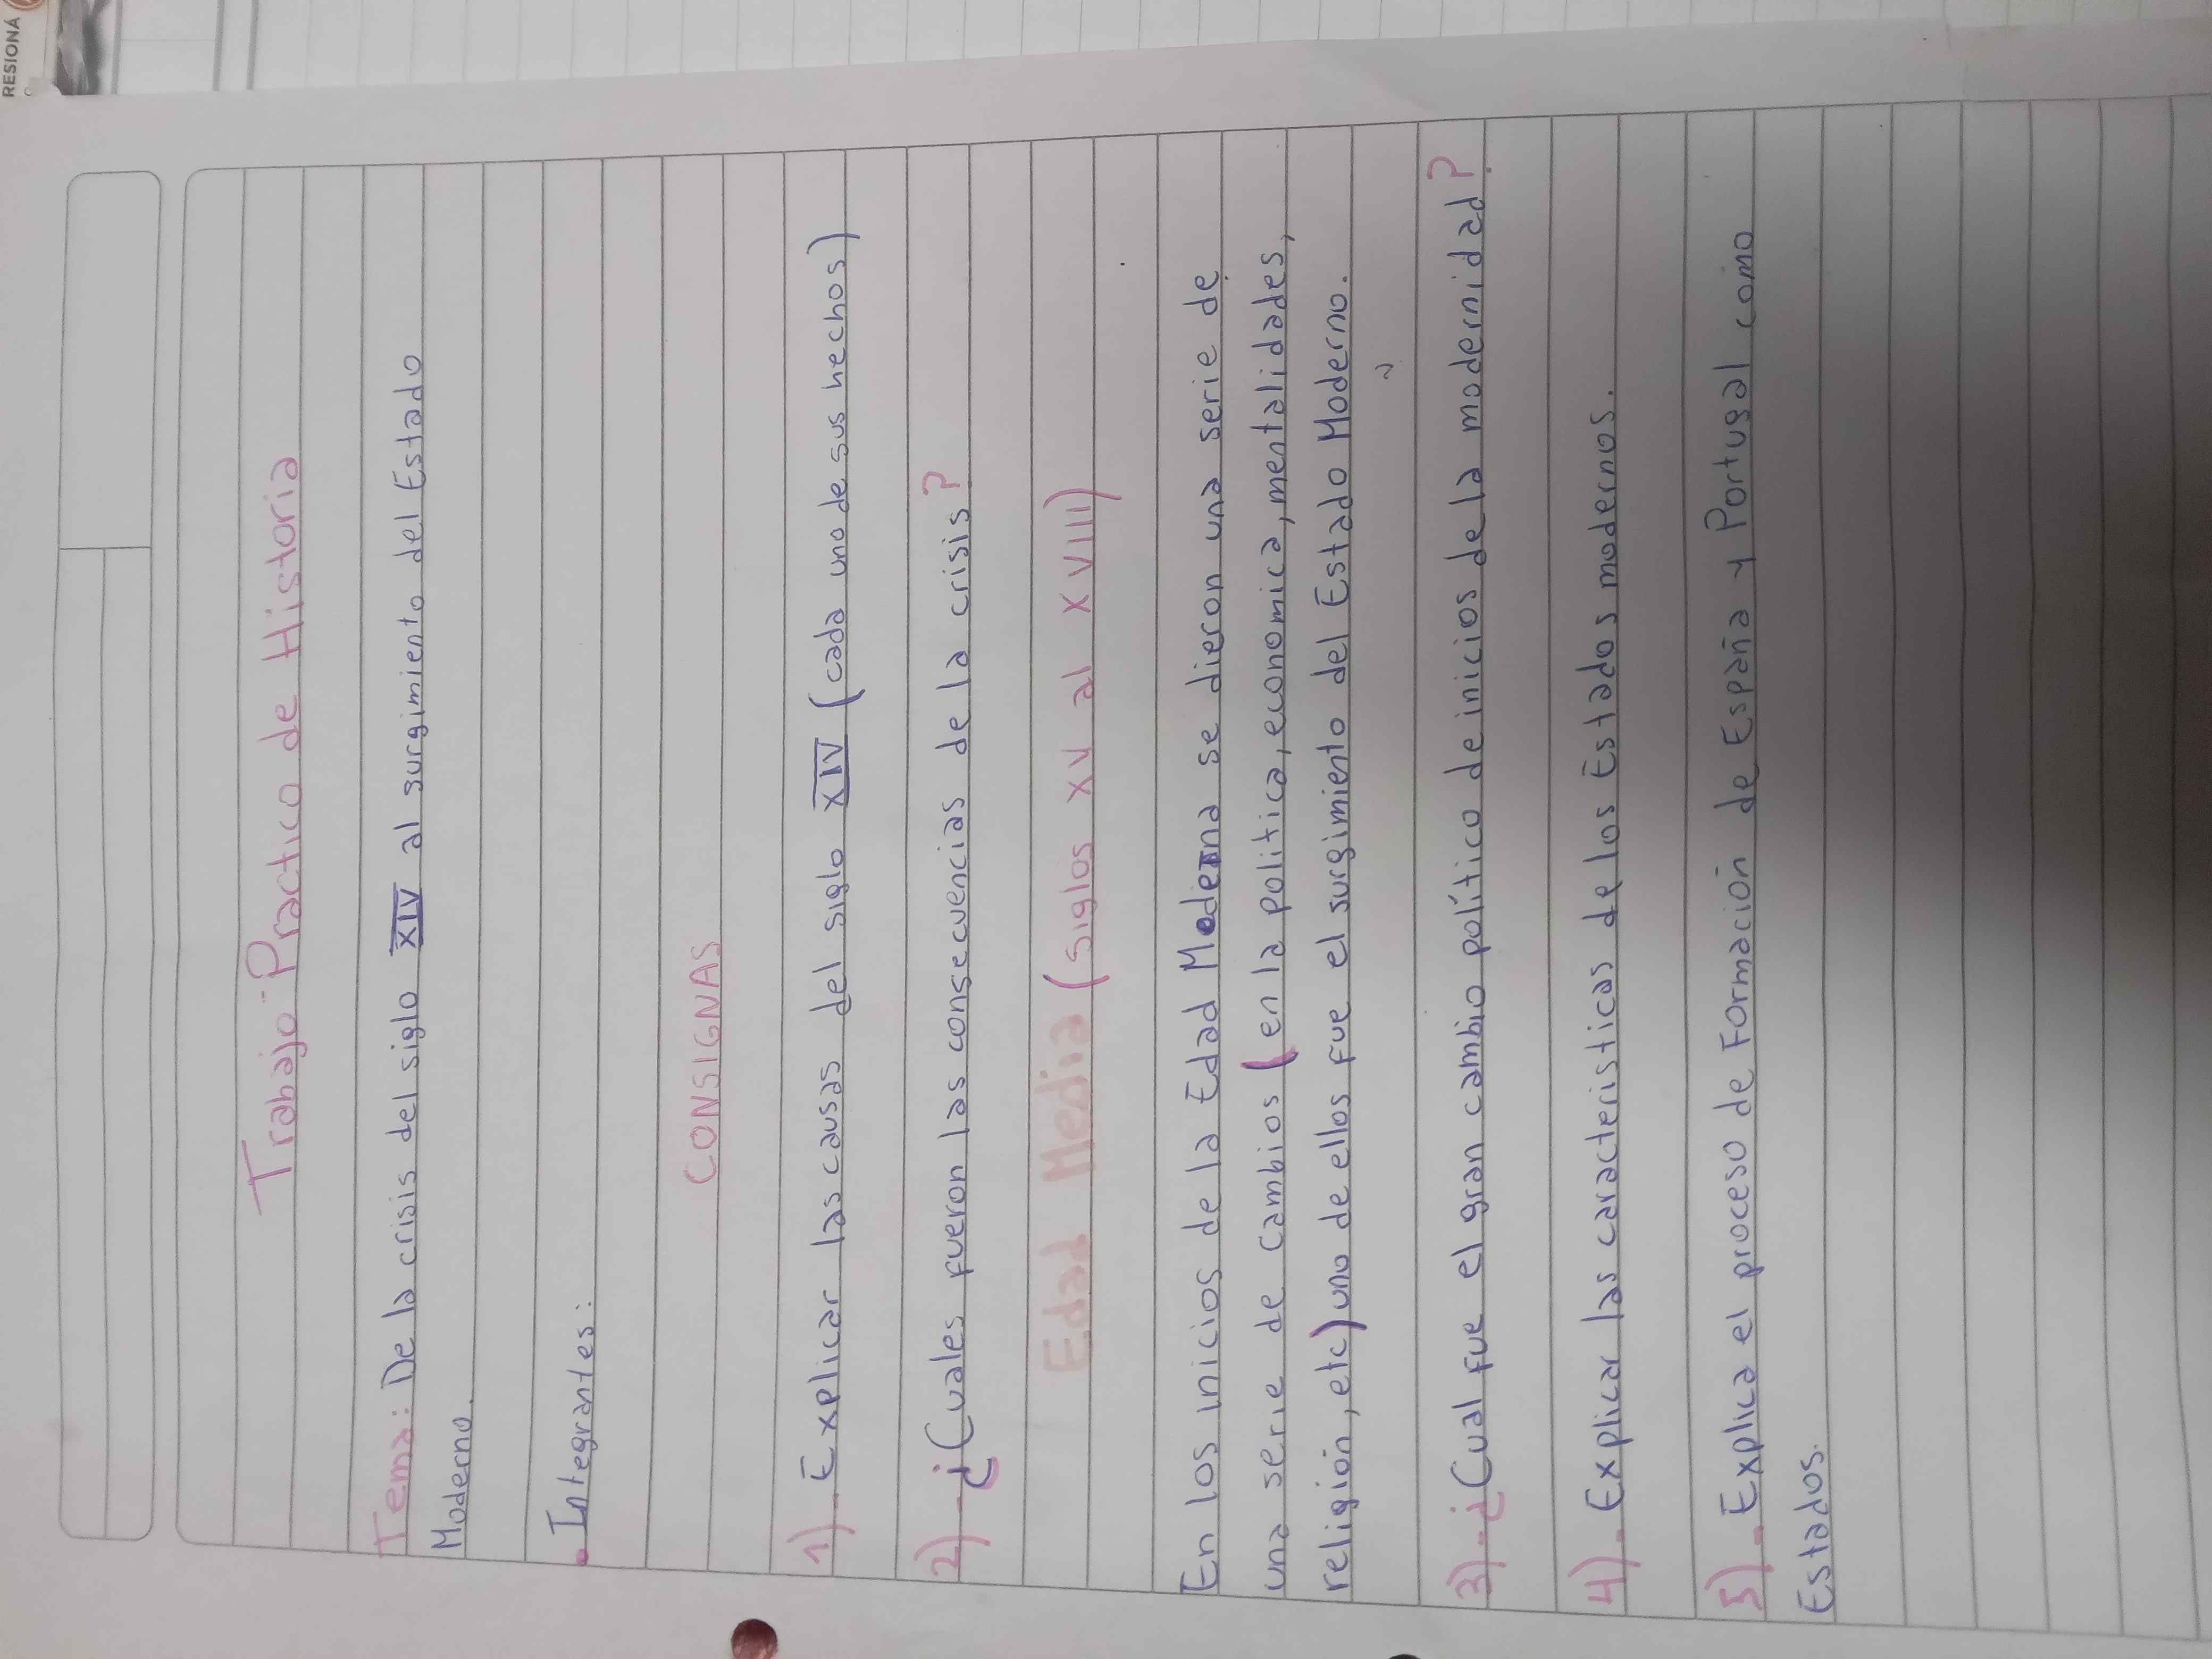 RESIONÁ
Trabajo Practico de Historia
Tema: De la crisis del siglo XIV al surgimiento del Estado
Moderno.
• Integrantes:
CONSIGNAS
1)- Explicar las causas del siglo XIV (cada uno de sus hechos)
2)- ¿Cuales fueron las consecuencias de la crisis?
Edad Media (siglos XV al XVIII)
En los inicios de la Edad Moderna se dieron una serie de
una serie de cambios (en la politica, economica, mentalidades,
religión, etc) uno de ellos fue el surgimiento del Estado Moderno.
3)- ¿Cual fue el gran cambio político de inicios de la modernidad?
4)- Explicar las caracteristicas de los Estados modernos.
5)- Explica el proceso de Formación de España y Portugal como
Estados.